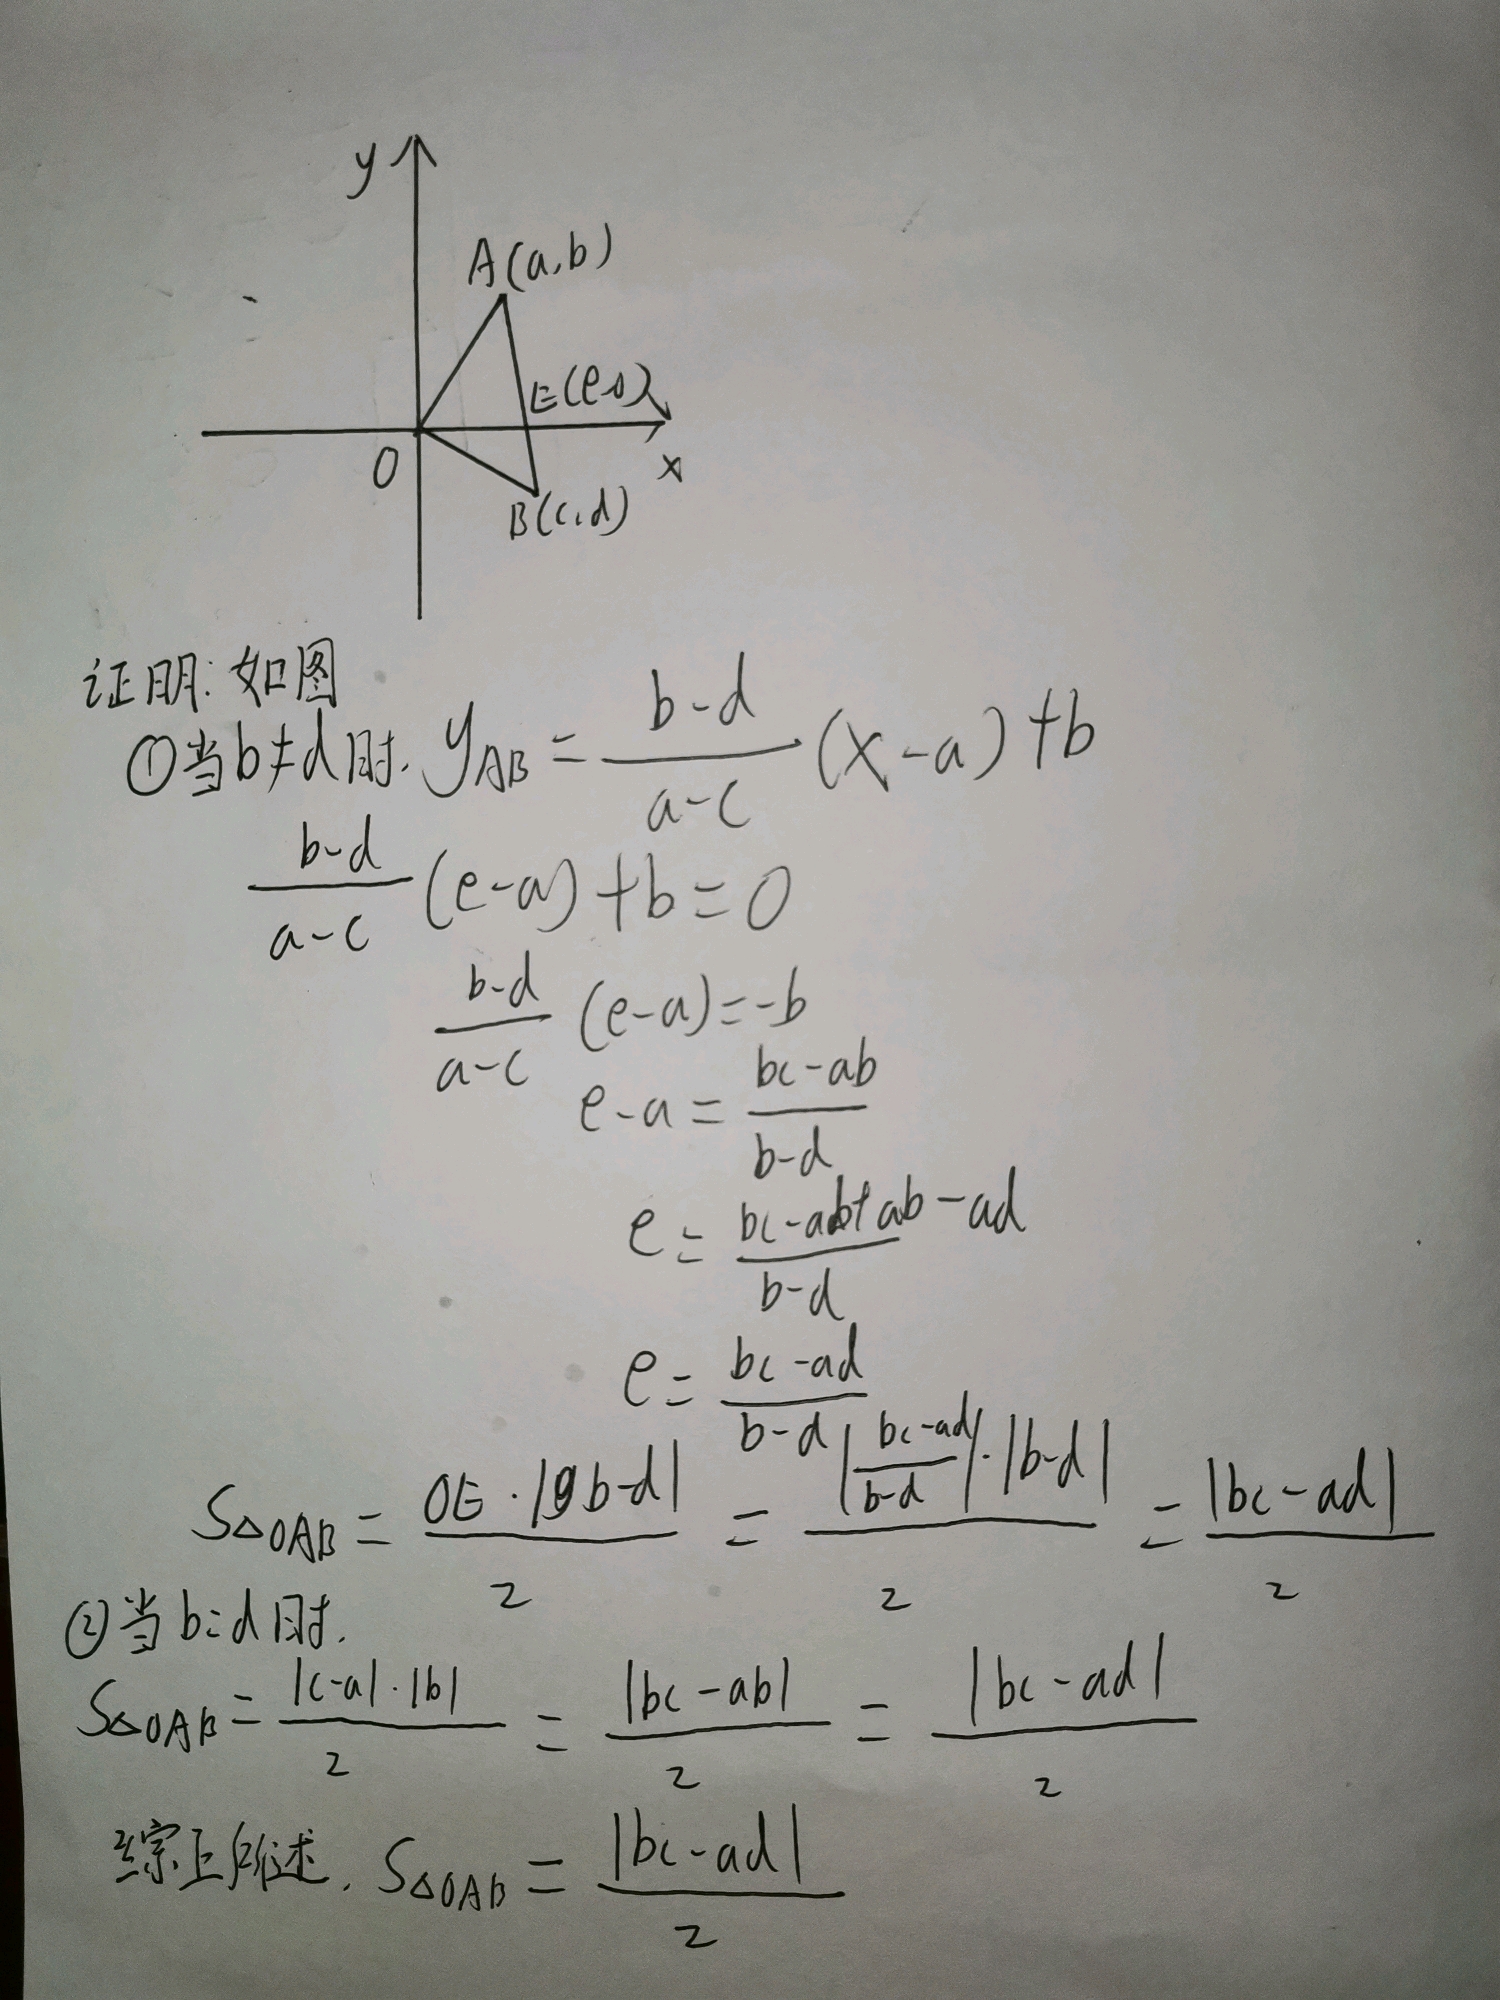 y
A(a,b)
E(e,0)
O
x
B(c,d)
证明:如图
①当b≠d时, y_AB = \frac{b-d}{a-c} (x-a)+b
\frac{b-d}{a-c} (e-a)+b=0
\frac{b-d}{a-c} (e-a)=-b
e-a = \frac{bc-ab}{b-d}
e = \frac{bc-ab+ab-ad}{b-d}
e = \frac{bc-ad}{b-d}
S△OAB = \frac{OE·|b-d|}{2} = \frac{|\frac{bc-ad}{b-d}|·|b-d|}{2} = \frac{|bc-ad|}{2}
②当b=d时,
S△OAB = \frac{|c-a|·|b|}{2} = \frac{|bc-ab|}{2} = \frac{|bc-ad|}{2}
综上所述, S△OAB = \frac{|bc-ad|}{2}